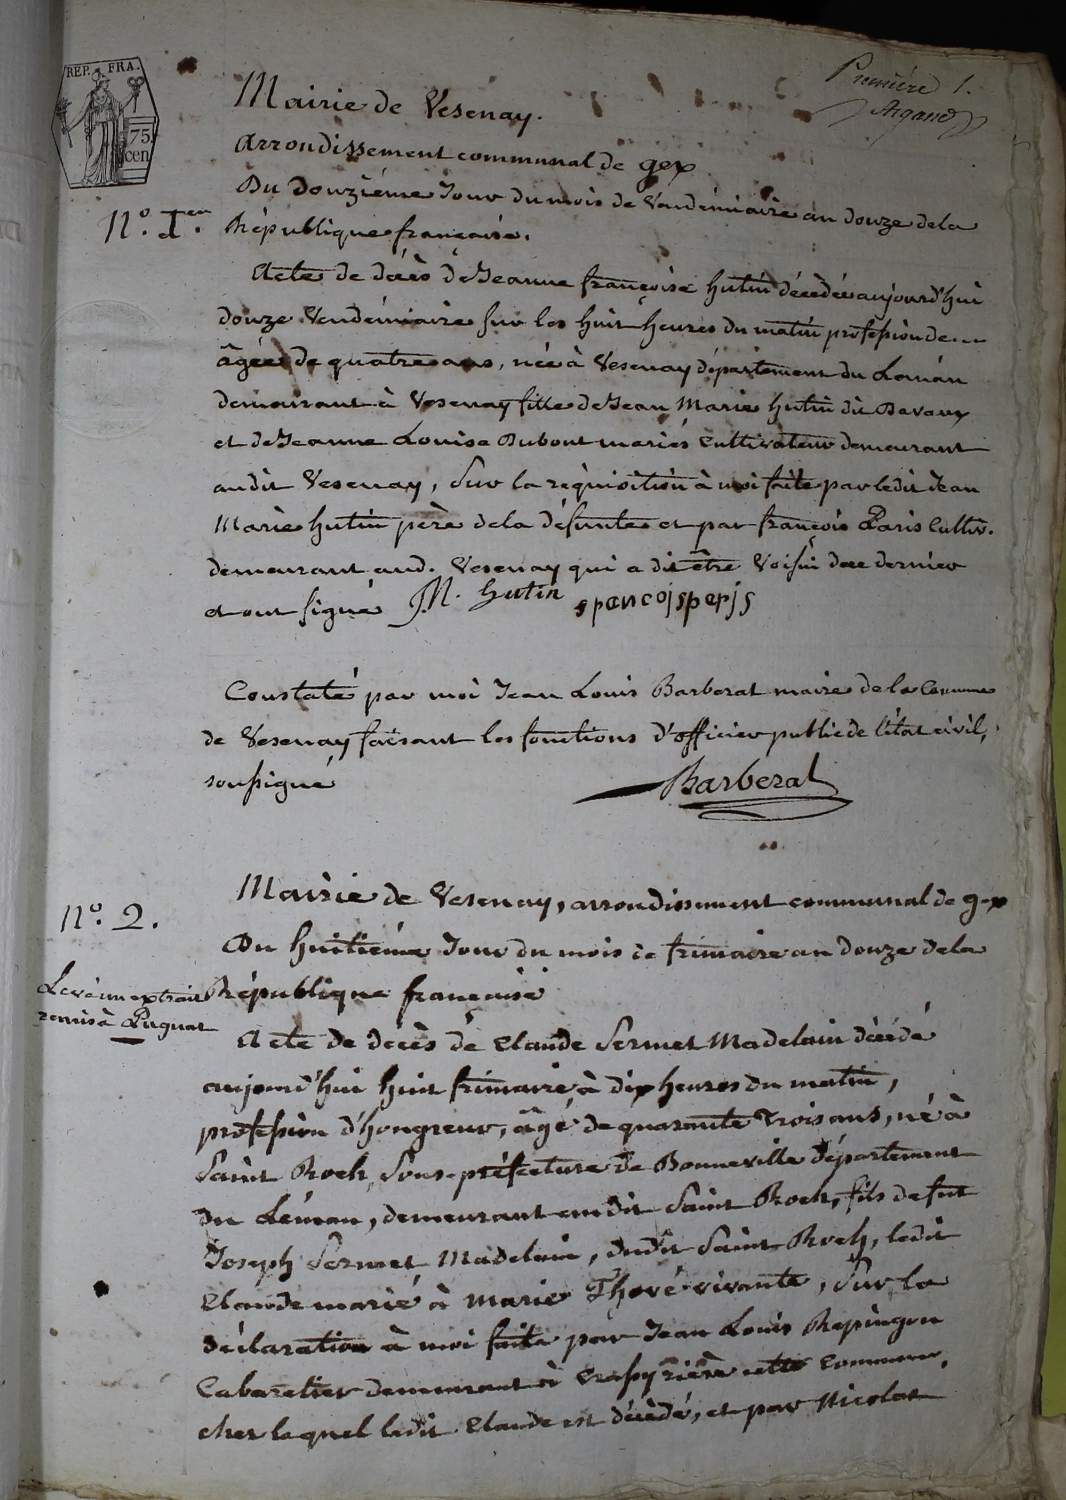 Première 1.
Argand
REP. FRA.
75
cen
Mairie de Vesenay.
Arrondissement communal de gex
Du Douziéme Jour du mois de Vendémiaire an douze de la
N.º I.er
République française.
Acte de décès de Jeanne françoise hutin décédée aujourd'hui
douze Vendémiaire sur les huit heures du matin profession de ...
âgée de quatre ans, née à Vesenay département du Léman
demeurant à Vesenay fille de Jean Marie hutin dit Bavoux
et de Jeanne Louise Dubout mariés Cultivateur demeurant
audit Vesenay, Sur la réquisition à moi faite par ledit Jean
Marie hutin père de la défunte et par françois Paris Cultiv.
demeurant aud. Vesenay qui a dit être Voisin de ce dernier
et ont signé J M. hutin francoisperis
Constaté par moi Jean Louis Barberat maire de la Commune
de Vesenay faisant les fonctions d'officier public de l'état civil,
soussigné
Barberat
Mairie de Vesenay, arrondissement communal de gex
N.º 2.
Du huitième Jour du mois de frimaire an douze de la
Levé un extrait
République française
remis à Pugnat
Acte de décès de Claude Sermet Madelain décédé
aujourd'hui huit frimaire, à dix heures du matin,
profession d'hongreur, âgé de quarante trois ans, né à
Saint Roch, Sous-préfecture de Bonneville département
du Léman, demeurant audit Saint Roch, fils de fut
Joseph Sermet Madelain, dudit Saint Roch, ledit
Claude marié à Marie Thoré vivante, Sur la
déclaration à moi faite par Jean Louis Repingon
Cabaretier demeurant à Crassy rière cette Commune,
chez lequel ledit Claude est décédé, et par Nicolas